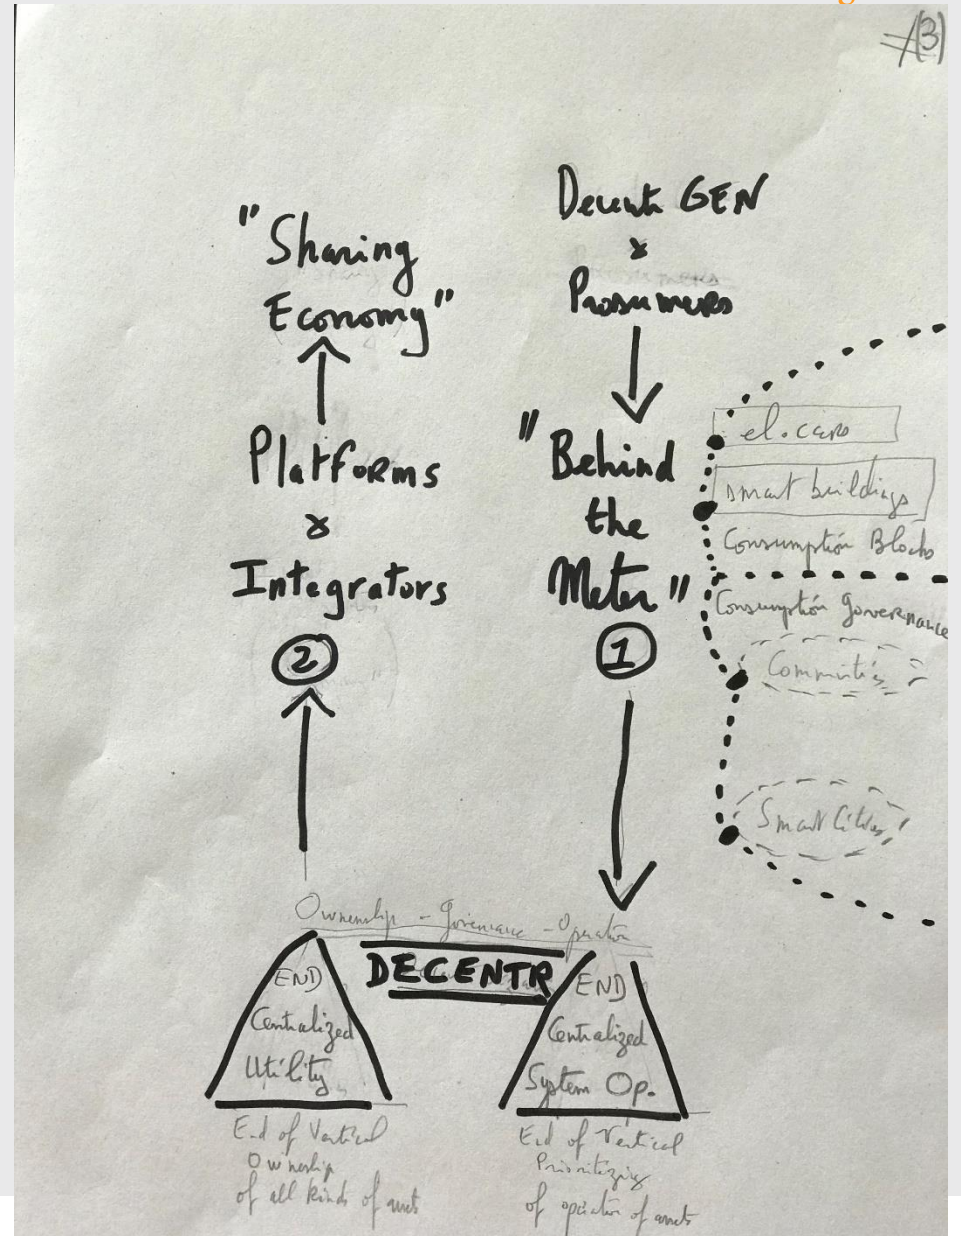 (3)
"Sharing
Economy"
Platforms
&
Integrators
2
Decentr GEN
&
Prosumers
"Behind
the
Meter"
1
el. cars
smart buildings
Consumption Blocks
Consumption governance
Communities
Smart Cities
Ownership - Governance - Operation
DECENTR
END
Centralized
Utility
End of Vertical
Ownership
of all kinds of assets
END
Centralized
System Op.
End of Vertical
Prioritizing
of operation of assets